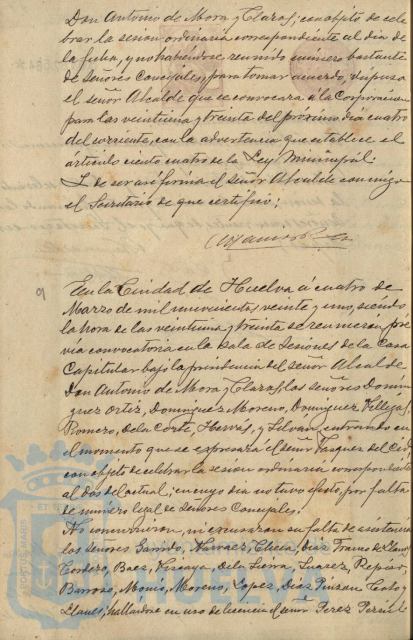 Don Antonio de Mora y Claros; con objeto de cele
brar la sesion ordinaria correspondiente al dia de
la fecha, y no habiéndose reunido número bastante
de señores Concejales, para tomar acuerdo, dispuso
el señor Alcalde que se convocara á la Corporacion
para las veintiuna y treinta del proximo dia cuatro
del corriente, con la advertencia que establece el
artículo ciento cuatro de la Ley Municipal.
I de ser así firma el señor Alcalde conmigo
el Secretario de que certifico;
9
En la Ciudad de Huelva á cuatro de
Marzo de mil novecientos veinte y uno, siendo
la hora de las veintiuna y treinta se reunieron, pre
vía convocatoria en la Sala de Sesiones de la Casa
Capitular bajo la presidencia del señor Alcalde
Don Antonio de Mora y Claros, los señores Domin
guez Ortiz, Dominguez Moreno, Dominguez Villegas,
Romero, de la Corte, Hervas, y Silvan, entrando en
el momento que se expresará el señor Vazquez del Cid
con objeto de celebrar la sesion ordinaria correspondiente
al dos del actual, en cuyo dia no tuvo efecto, por falta
de número legal de Señores Concejales.
No concurrieron, ni excusaron su falta de asistencia
los señores Garrido, Narvaez, Checa, Diaz Franco de Llanos
Cordero, Baez, Vizcaya, de la Sierra, Suarez,
Barroso, Moreno, Lopez, Diaz Pinzon, Coto y
Llanes; hallandose en uso de licencia el señor Perez
PORTUS MARIS